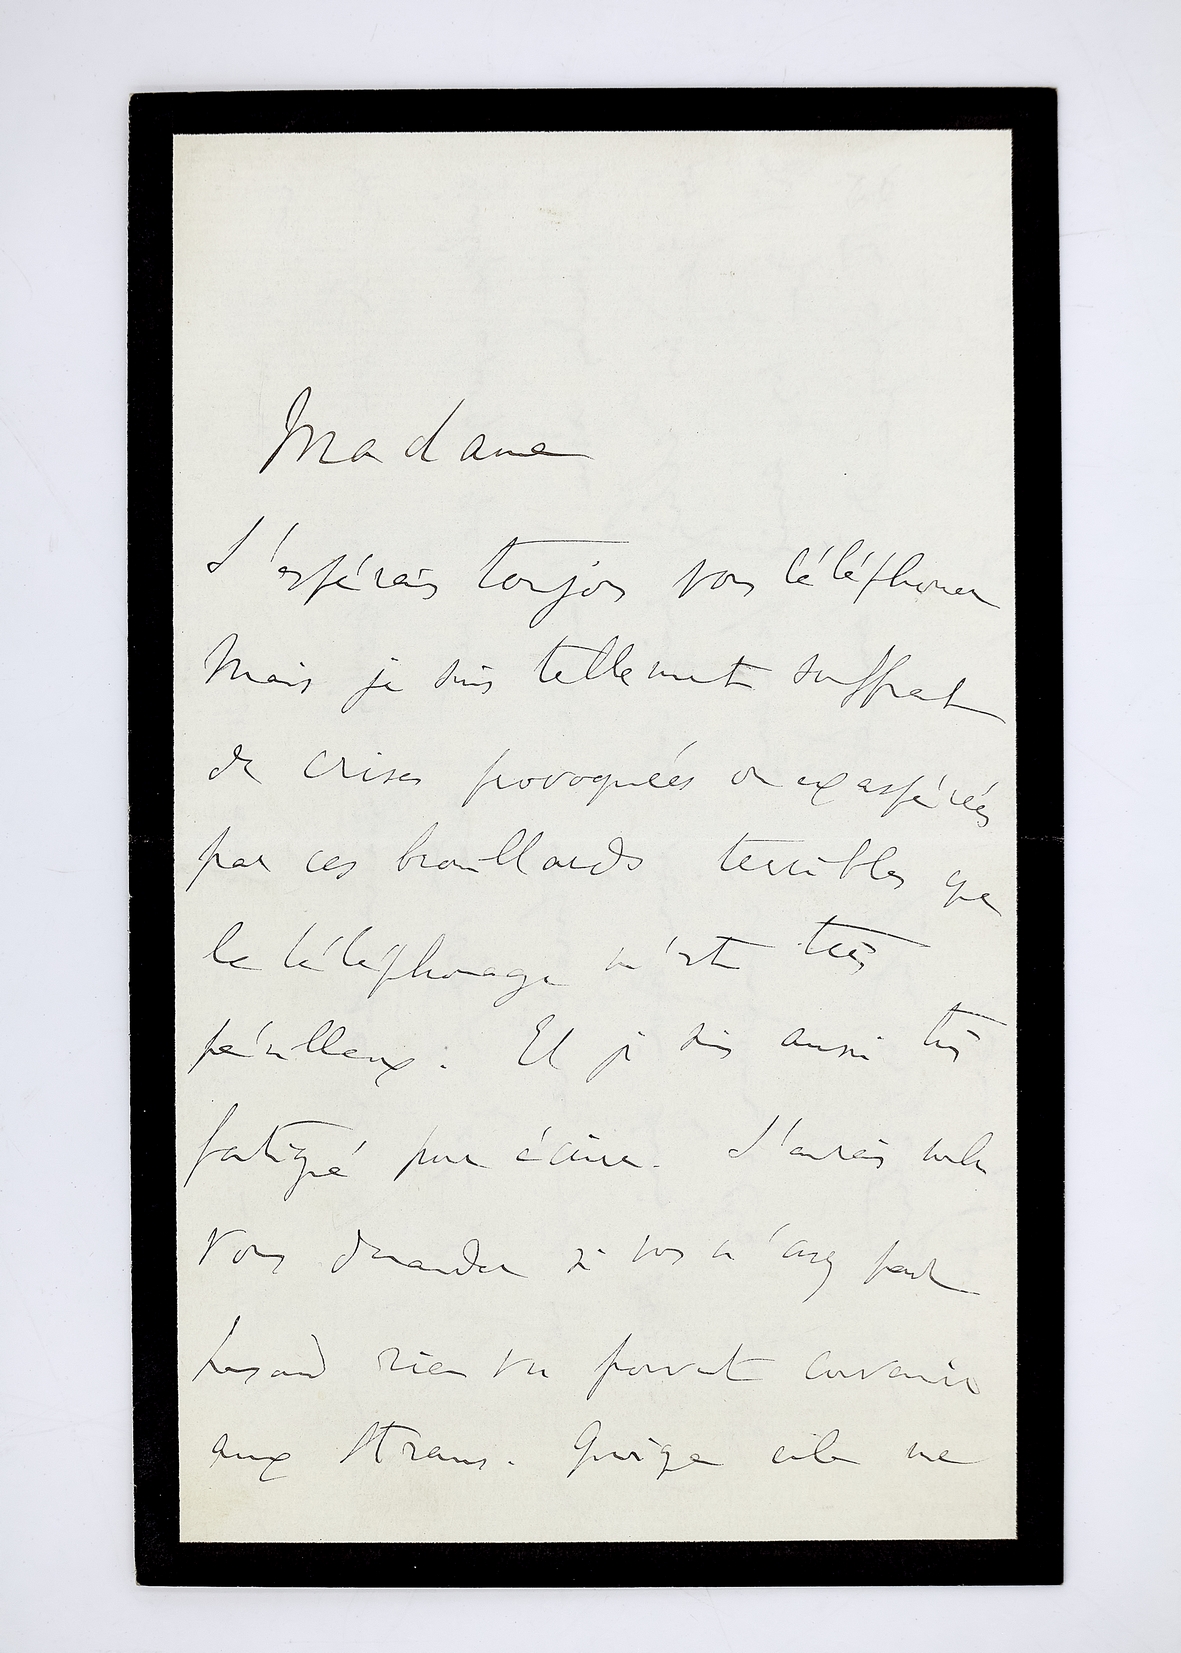 Madame
J'espérais toujours vous téléphoner
Mais je suis tellement souffrant
de crises provoquées ou exaspérées
par ces brouillards terribles que
le téléphonage m'est très
périlleux. Et je suis aussi très
fatigué pour écrire. J'aurais voulu
vous demander si vous n'avez par
hasard rien vu pouvant convenir
aux Straus. Quoique cela me